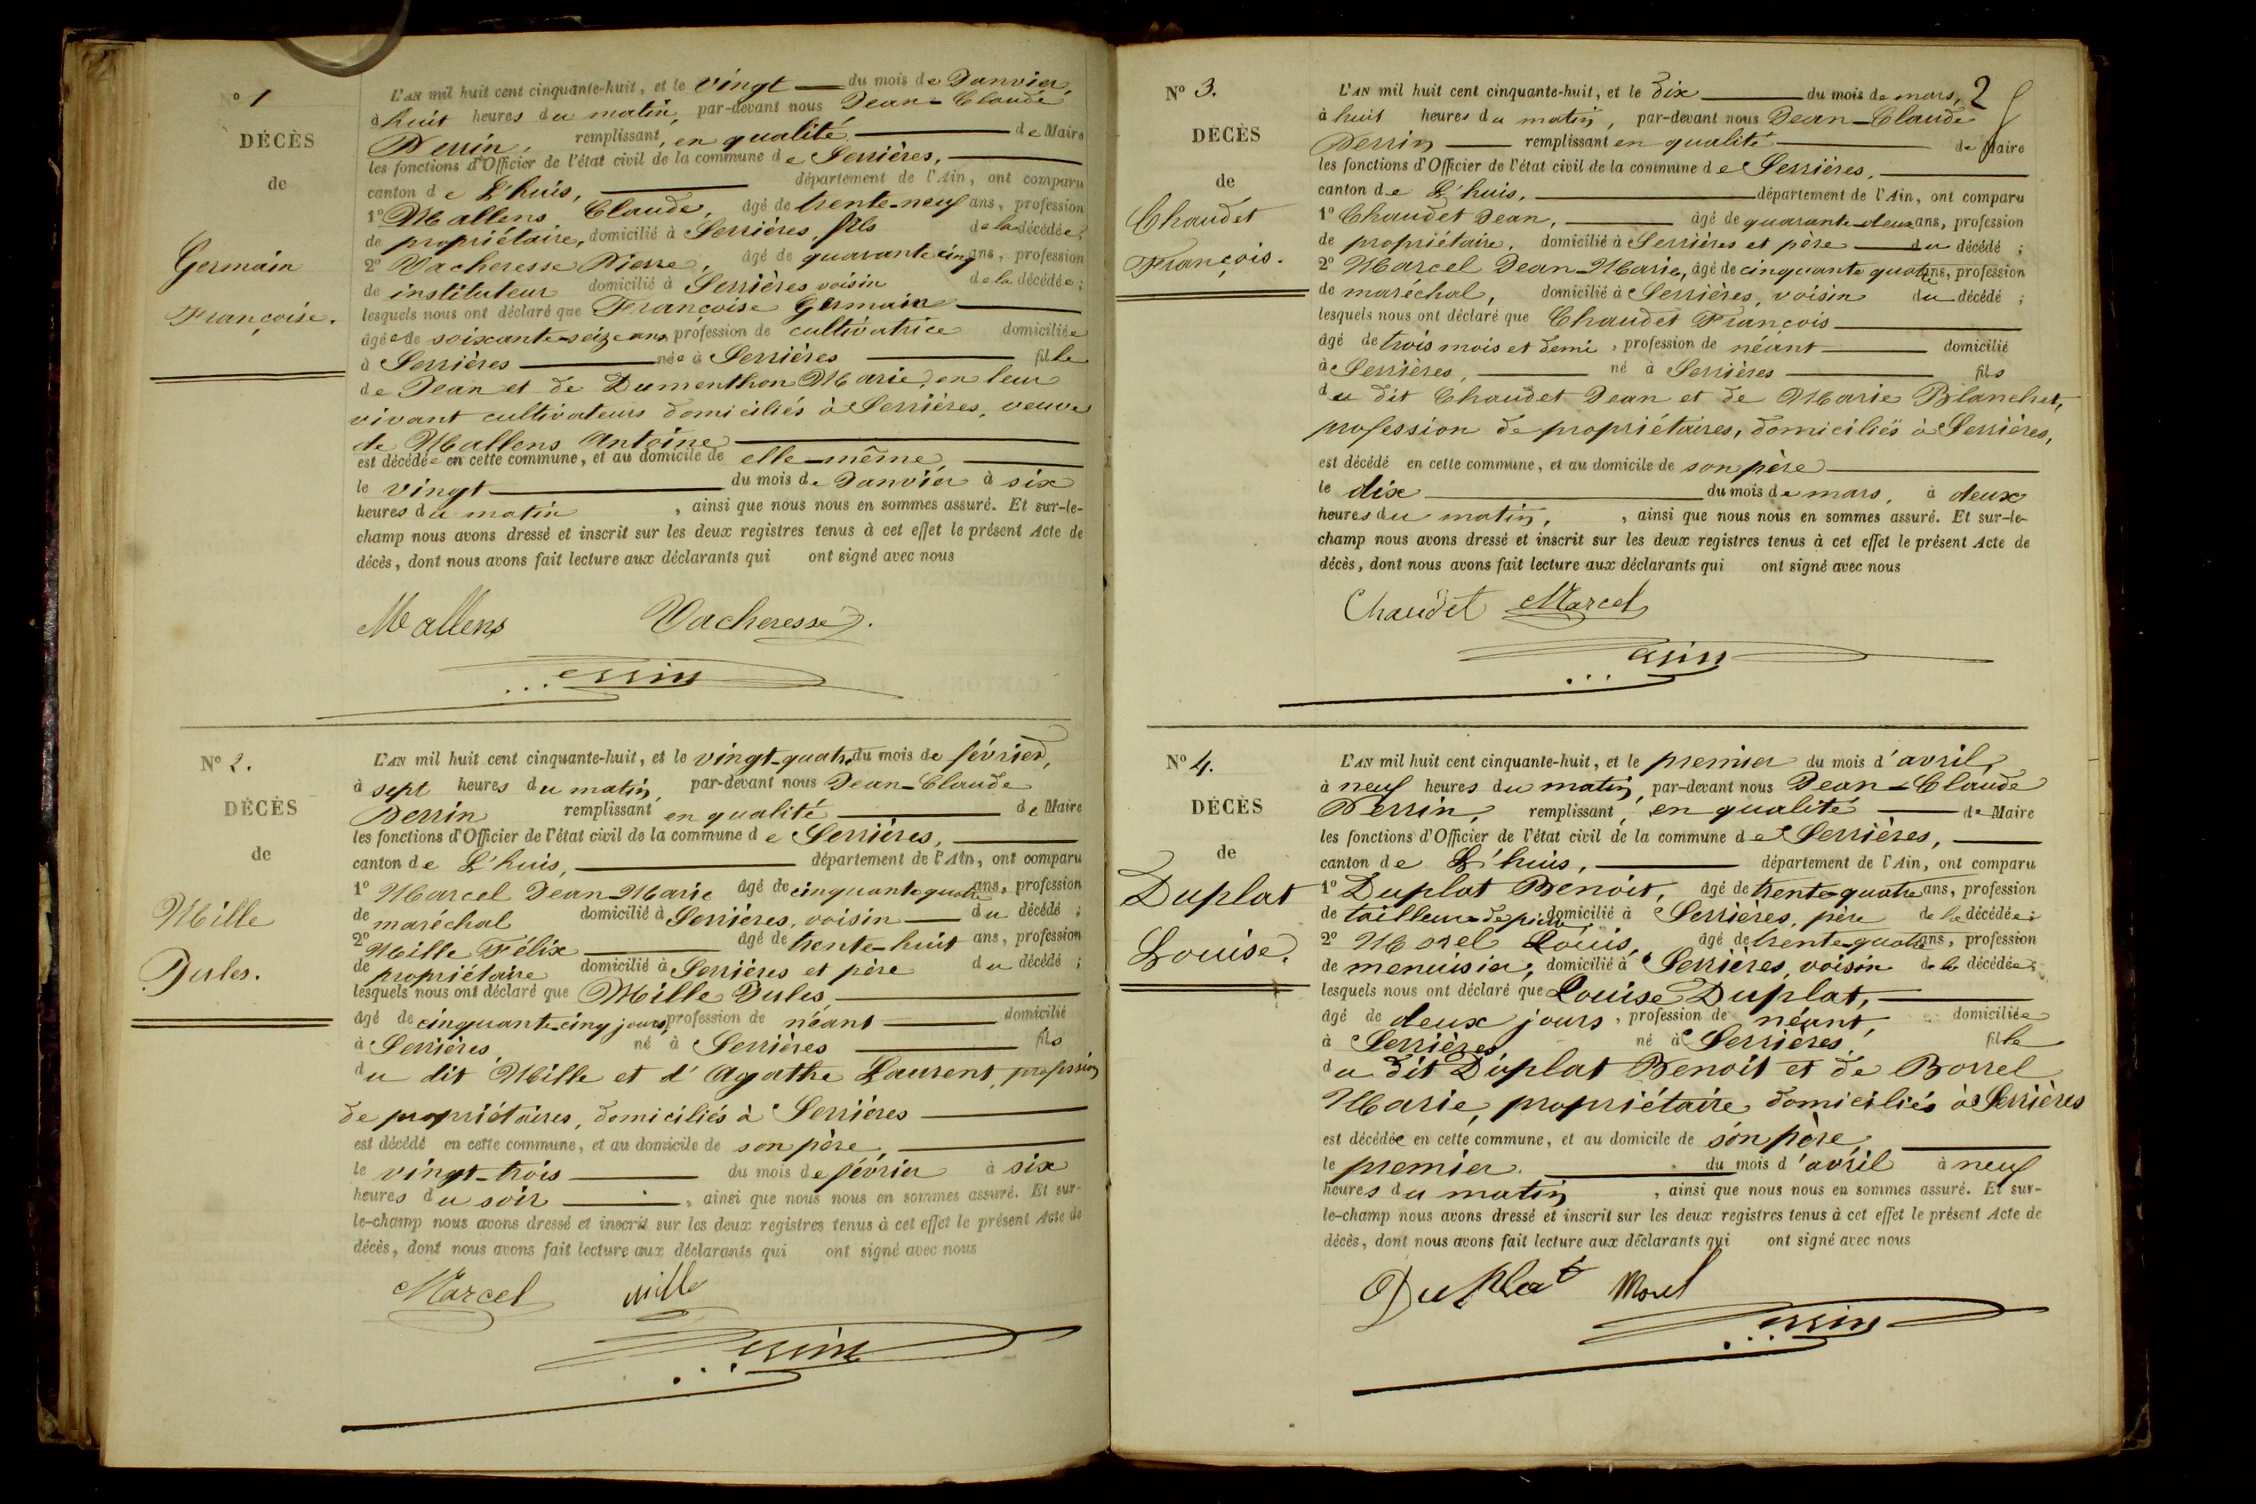 N° 1
DÉCÈS
de
Germain
Françoise.
L'AN mil huit cent cinquante-huit, et le vingt du mois de Janvier,
à huit heures du matin, par-devant nous Jean-Claude
Perrin, remplissant, en qualité de Maire
les fonctions d'Officier de l'état civil de la commune de Serrières,
canton de L'huis, département de l'Ain, ont comparu
1° Mallens Claude, âgé de trente-neuf ans, profession
de propriétaire, domicilié à Serrières, fils de la décédée;
2° Vacheresse Pierre, âgé de quarante cinq ans, profession
de instituteur domicilié à Serrières voisin de la décédée;
lesquels nous ont déclaré que Françoise Germain
âgée de soixante-seize ans, profession de cultivatrice domiciliée
à Serrières née à Serrières fille
de Jean et de Dumenthon Marie, en leur
vivant cultivateurs domiciliés à Serrières, veuve
de Mallens Antoine
est décédée en cette commune, et au domicile de elle-même,
le vingt du mois de Janvier à six
heures du matin, ainsi que nous nous en sommes assuré. Et sur-le-
champ nous avons dressé et inscrit sur les deux registres tenus à cet effet le présent Acte de
décès, dont nous avons fait lecture aux déclarants qui ont signé avec nous
Mallens Vacheresse.
Perrin
N° 2.
DÉCÈS
de
Mille
Jules.
L'AN mil huit cent cinquante-huit, et le vingt-quatre du mois de février,
à sept heures du matin, par-devant nous Jean-Claude
Perrin remplissant, en qualité de Maire
les fonctions d'Officier de l'état civil de la commune de Serrières,
canton de L'huis, département de l'Ain, ont comparu
1° Marcel Jean-Marie âgé de cinquante quatre ans, profession
de maréchal domicilié à Serrières, voisin du décédé;
2° Mille Félix âgé de trente-huit ans, profession
de propriétaire domicilié à Serrières et père du décédé;
lesquels nous ont déclaré que Mille Jules,
âgé de cinquante-cinq jours, profession de néant domicilié
à Serrières, né à Serrières fils
du dit Mille et d'Agathe Laurent, profession
de propriétaires, domiciliés à Serrières
est décédé en cette commune, et au domicile de son père,
le vingt-trois du mois de février à six
heures du soir, ainsi que nous nous en sommes assuré. Et sur-
le-champ nous avons dressé et inscrit sur les deux registres tenus à cet effet le présent Acte de
décès, dont nous avons fait lecture aux déclarants qui ont signé avec nous
Marcel Mille
Perrin
2
N° 3.
DÉCÈS
de
Chaudet
François.
L'AN mil huit cent cinquante-huit, et le dix du mois de mars,
à huit heures du matin, par-devant nous Jean-Claude
Perrin remplissant en qualité de Maire
les fonctions d'Officier de l'état civil de la commune de Serrières,
canton de L'huis, département de l'Ain, ont comparu
1° Chaudet Jean, âgé de quarante-deux ans, profession
de propriétaire, domicilié à Serrières et père du décédé;
2° Marcel Jean-Marie, âgé de cinquante quatre ans, profession
de maréchal, domicilié à Serrières, voisin du décédé;
lesquels nous ont déclaré que Chaudet François
âgé de trois mois et demi, profession de néant domicilié
à Serrières, né à Serrières fils
du dit Chaudet Jean et de Marie Blanchet,
profession de propriétaires, domiciliés à Serrières,
est décédé en cette commune, et au domicile de son père
le dix du mois de mars, à deux
heures du matin, , ainsi que nous nous en sommes assuré. Et sur-le-
champ nous avons dressé et inscrit sur les deux registres tenus à cet effet le présent Acte de
décès, dont nous avons fait lecture aux déclarants qui ont signé avec nous
Chaudet Marcel
Perrin
N° 4.
DÉCÈS
de
Duplat
Louise.
L'AN mil huit cent cinquante-huit, et le premier du mois d'avril,
à neuf heures du matin, par-devant nous Jean-Claude
Perrin, remplissant, en qualité de Maire
les fonctions d'Officier de l'état civil de la commune de Serrières,
canton de L'huis, département de l'Ain, ont comparu
1° Duplat Benoit, âgé de trente-quatre ans, profession
de tailleur de pierre, domicilié à Serrières, père de la décédée;
2° Morel Louis, âgé de trente-quatre ans, profession
de menuisier, domicilié à Serrières, voisin de la décédée;
lesquels nous ont déclaré que Louise Duplat,
âgé de deux jours, profession de néant, domiciliée
à Serrières né à Serrières, fille
du dit Duplat Benoit et de Borrel
Marie, propriétaire domiciliés à Serrières
est décédée en cette commune, et au domicile de son père,
le premier. du mois d'avril à neuf
heures du matin, ainsi que nous nous en sommes assuré. Et sur-
le-champ nous avons dressé et inscrit sur les deux registres tenus à cet effet le présent Acte de
décès, dont nous avons fait lecture aux déclarants qui ont signé avec nous
Duplat Morel
Perrin